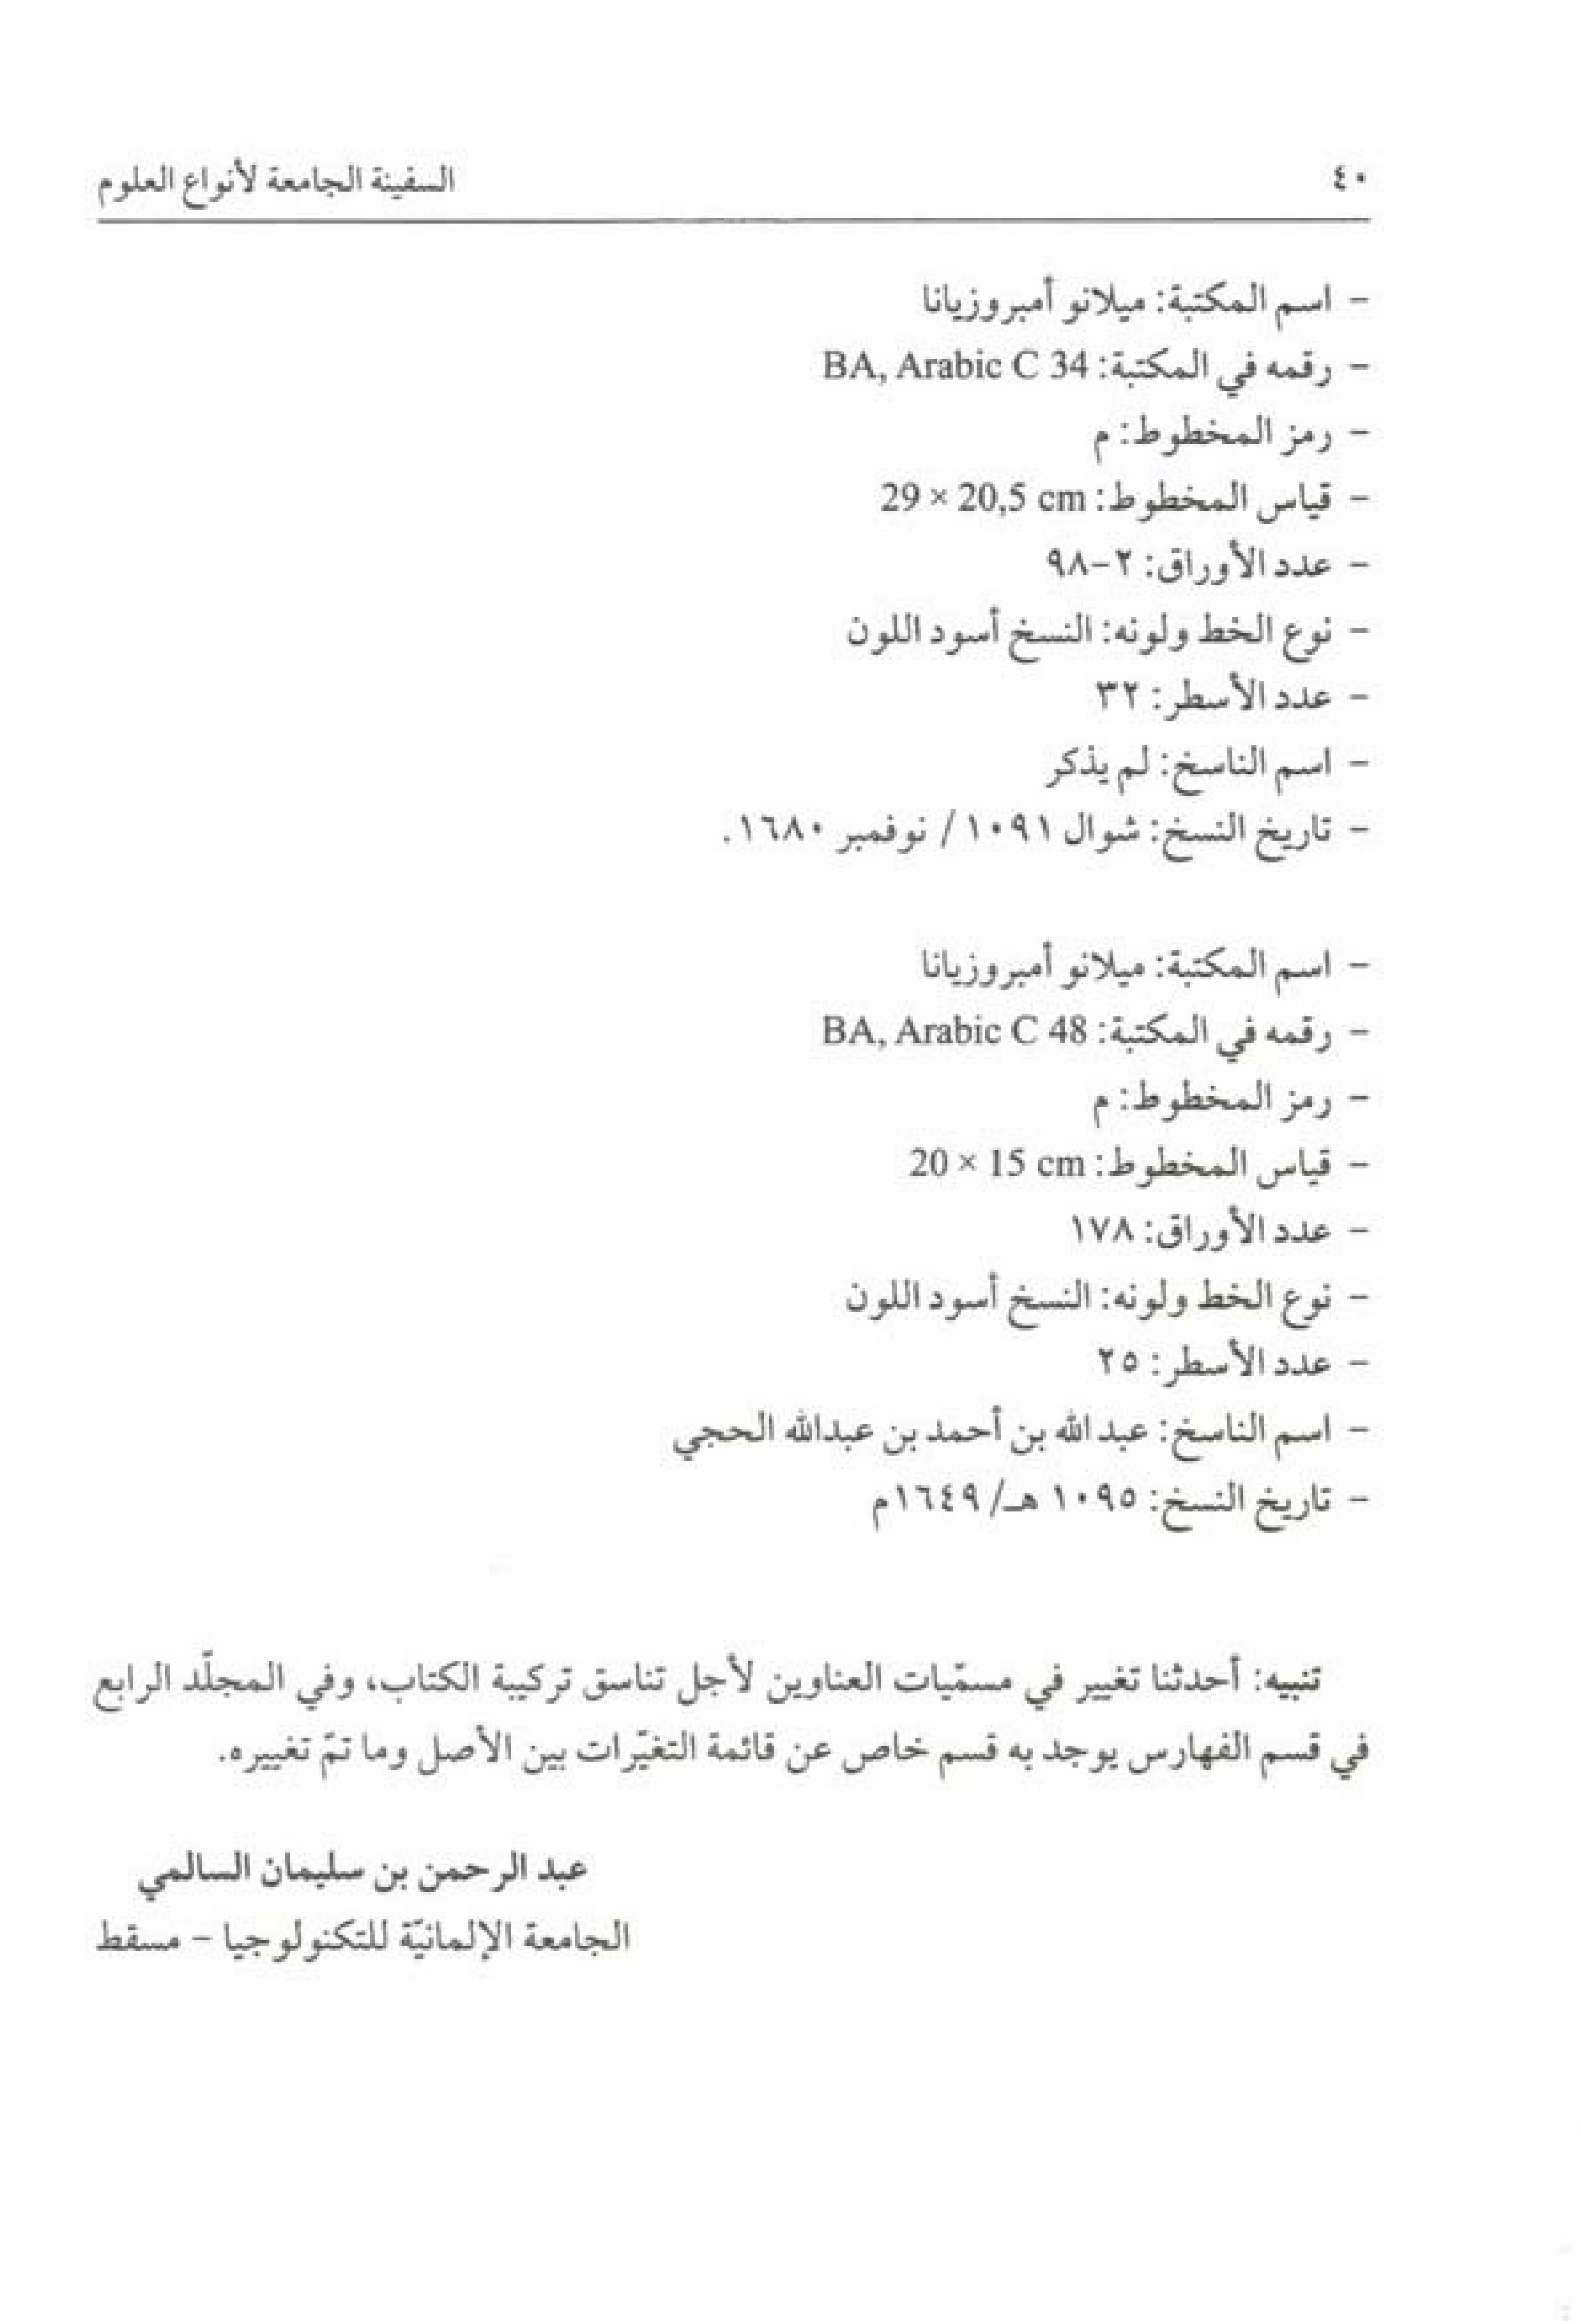 ٤٠
السفينة الجامعة لأنواع العلوم
– اسم المكتبة: ميلانو أمبروزيانا
– رقمه في المكتبة: BA, Arabic C 34
– رمز المخطوط: م
– قياس المخطوط: 29 × 20,5 cm
– عدد الأوراق: ٢–٩٨
– نوع الخط ولونه: النسخ أسود اللون
– عدد الأسطر: ٣٢
– اسم الناسخ: لم يذكر
– تاريخ النسخ: شوال ١٠٩١ / نوفمبر ١٦٨٠.
– اسم المكتبة: ميلانو أمبروزيانا
– رقمه في المكتبة: BA, Arabic C 48
– رمز المخطوط: م
– قياس المخطوط: 20 × 15 cm
– عدد الأوراق: ١٧٨
– نوع الخط ولونه: النسخ أسود اللون
– عدد الأسطر: ٢٥
– اسم الناسخ: عبد الله بن أحمد بن عبدالله الحجي
– تاريخ النسخ: ١٠٩٥ هـ/ ١٦٤٩م
تنبيه: أحدثنا تغيير في مسمّيات العناوين لأجل تناسق تركيبة الكتاب، وفي المجلّد الرابع
في قسم الفهارس يوجد به قسم خاص عن قائمة التغيّرات بين الأصل وما تمّ تغييره.
عبد الرحمن بن سليمان السالمي
الجامعة الإلمانيّة للتكنولوجيا – مسقط